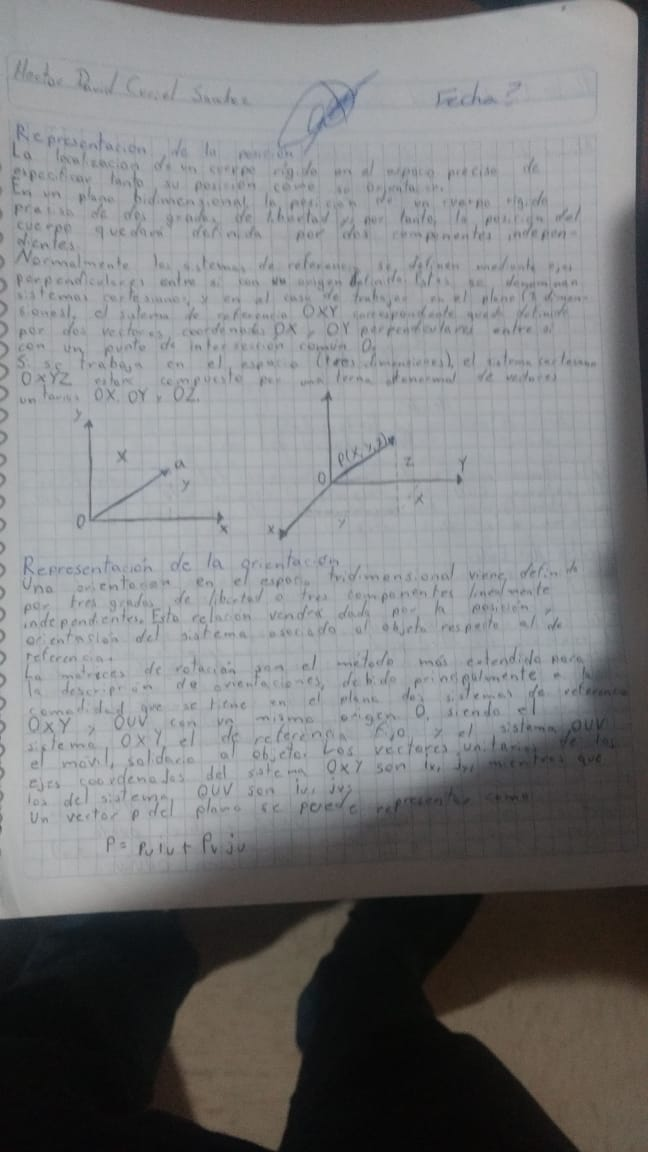 Hector David
Fecha?
Representacion de la posición
La localizacion de un cuerpo rigido en el espacio precisa de
especificar tanto su posicion como su orientacion.
En un plano bidimensional, la posicion de un cuerpo rigido
precisa de dos grados de libertad y, por tanto, la posicion del
cuerpo quedara definida por dos componentes indepen-
dientes.
Normalmente los sistemas de referencia se definen mediante ejes
perpendiculares entre si con un origen definido. Estos se denominan
sistemas cartesianos, y en el caso de trabajar en el plano (2 dimen
siones), el sistema de referencia OXY correspondiente queda definido
por dos vectores coordenados OX y OY perpendiculares entre si
con un punto de interseccion comun O.
Si se trabaja en el espacio (tres dimensiones), el sistema cartesiano
OXYZ estara compuesto por una terna ortonormal de vectores
unitarios OX, OY y OZ.
y
x
a
y
O
x
P(x,y,z)
O
z
Y
x
x
y
Representación de la orientación
Una orientacion en el espacio tridimensional viene definida
por tres grados de libertad o tres componentes linealmente
independientes. Esta relacion vendra dada por la posición y
orientasion del sistema asociado al objeto respecto al de
referencia.
La matrices de rotación son el método más extendido para
la descripcion de orientaciones, debido principalmente a la
comodidad que se tiene en el plano dos sistemas de referencia
OXY y OUV con un mismo origen O, siendo el
sistema OXY el de referencia fijo y el sistema OUV
el móvil solidario al objeto. Los vectores unitarios de los
ejes coordenados del sistema OXY son ix, jy, mientras que
los del sistema OUV son iu, jv.
Un vector p del plano se puede representar como
P = Pu iu + Pv jv